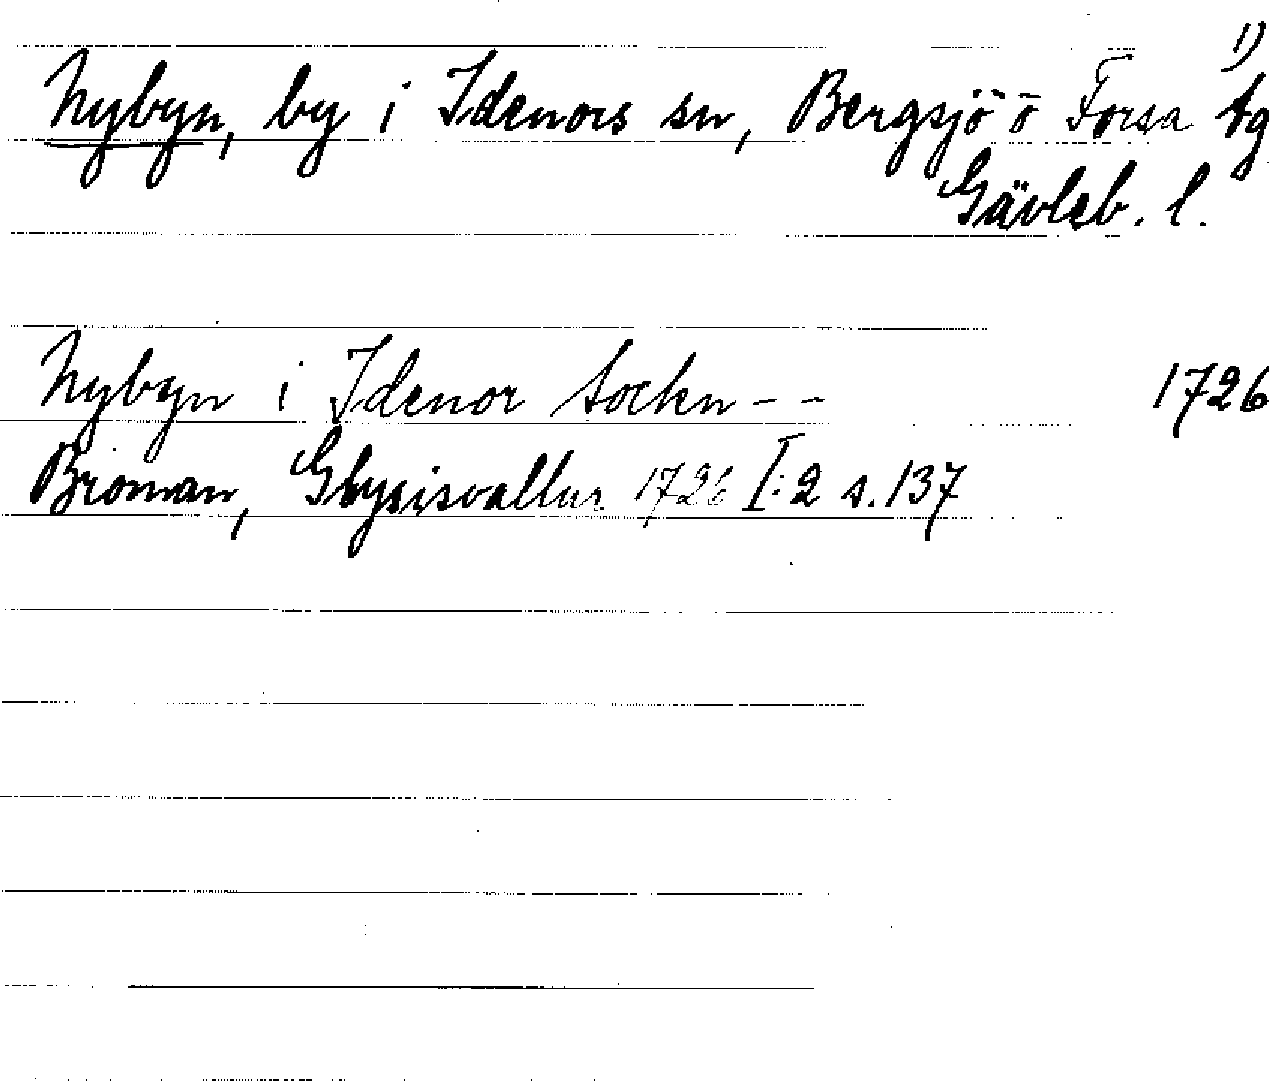 1)
Nybyn, by i Idenors sn, Bergsjö o Forsa tg
Gävleb. l.
Nybyn i Idenor Sockn - - 1726
Broman, Glysisvallur 1726 I:2 s. 137